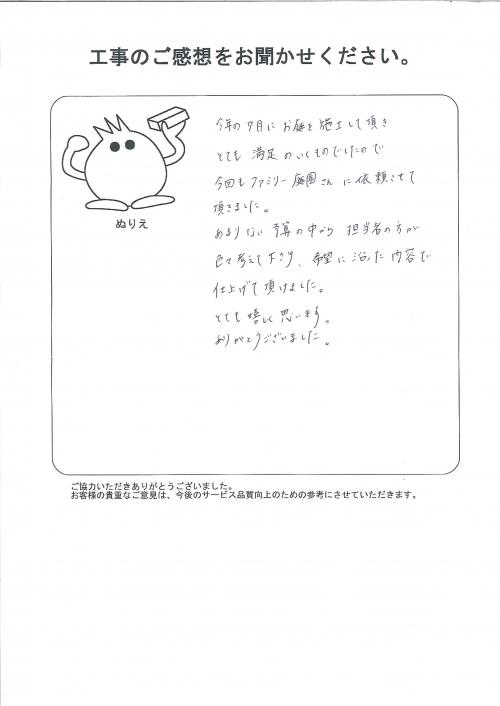 工事のご感想をお聞かせください。
今年の7月にお庭を施工して頂き
とても 満足のいくものでしたので
今回もファミリー庭園さんに依頼させて
頂きました。
あまりない予算の中から 担当者の方が
色々考えて下さり、希望に沿った内容で
仕上げて頂けました。
とても嬉しく思います。
ありがとうございました。
ぬりえ
ご協力いただきありがとうございました。
お客様の貴重なご意見は、今後のサービス品質向上のための参考にさせていただきます。